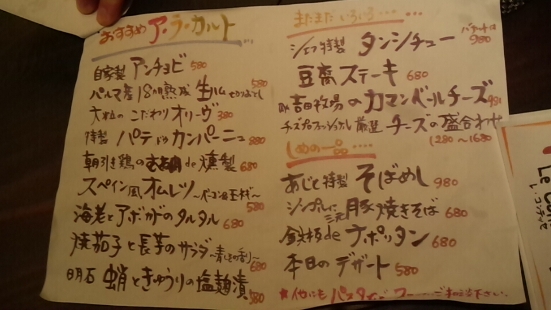 おすすめ ア・ラ・カルト…
自家製 アンチョビ 580
パルマ産18ヶ月熟成 生ハム 580
大粒の こだわり オリーヴ 380
特製 パテ ド カンパーニュ 880
朝引き鶏の de 燻製 680
スペイン風 オムレツ 580
海老とアボカドのタルタル 680
焼茄子と長芋のサラダ 680
明石 蛸ときゅうりの塩麹漬 580
まだまだ いろいろ…
シェフ特製 タンシチュー バケット付 980
豆腐ステーキ 680
吉田牧場の カマンベールチーズ
チーズプロフェッショナル厳選 チーズの盛合わせ
1280〜1680
しめの一品……
あじと特製 そばめし 980
シンプルに 豚焼きそば 680
鉄板de ナポリタン 680
本日の デザート 580
★他にも パスタ